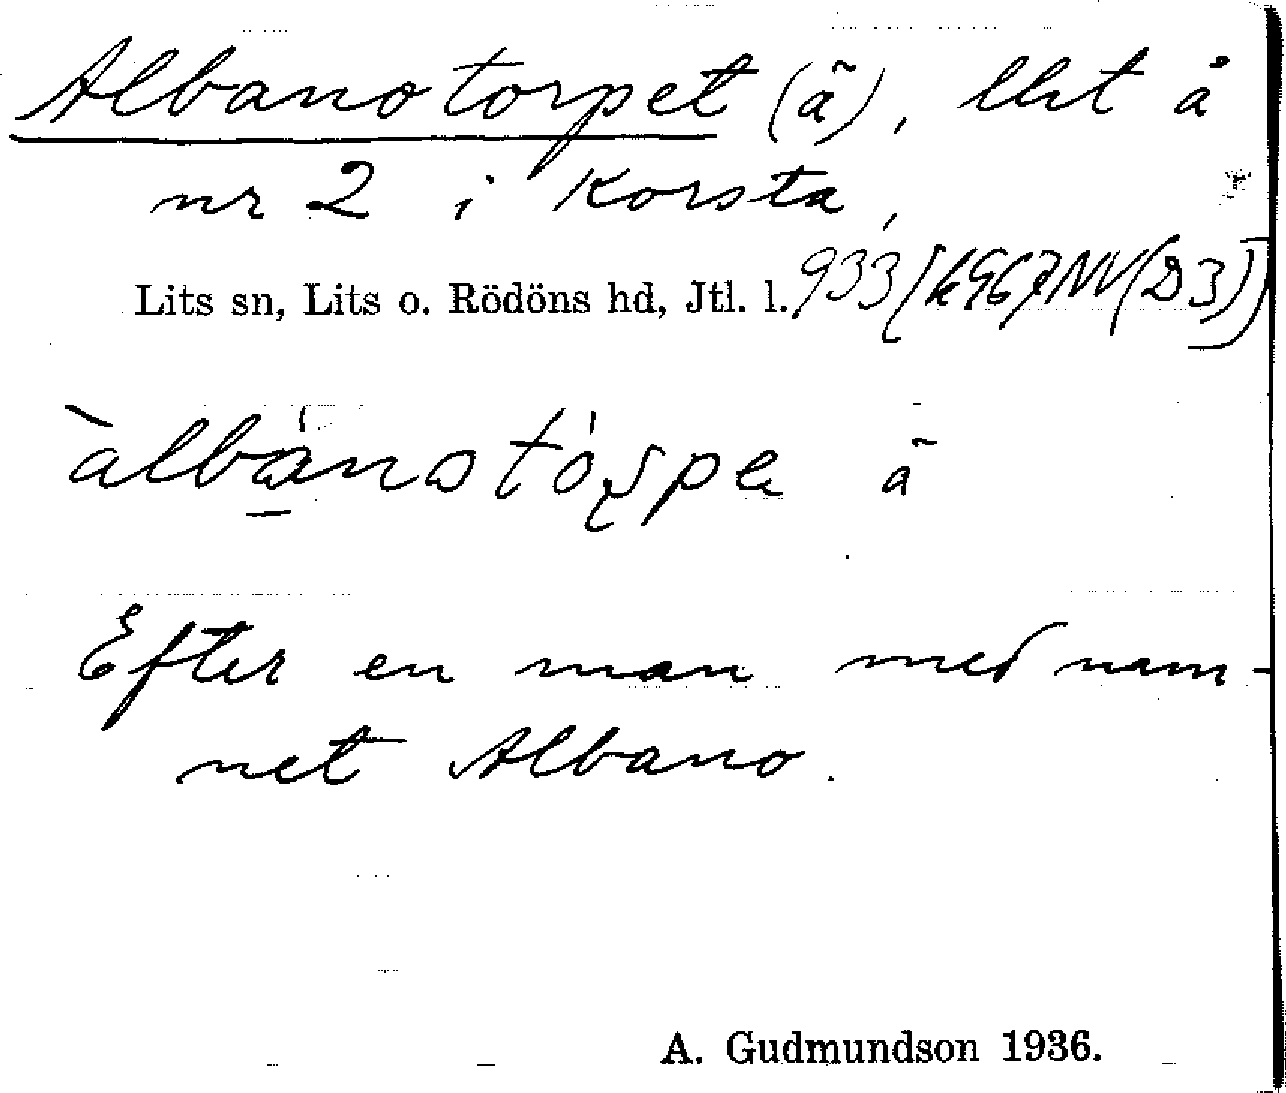 Albanotorpet (ã), lht å
nr 2 i Korsta,
Lits sn, Lits o. Rödöns hd, Jtl. l.,
àlbánotórpe ã
Efter en man med nam-
net Albano.
A. Gudmundson 1936.